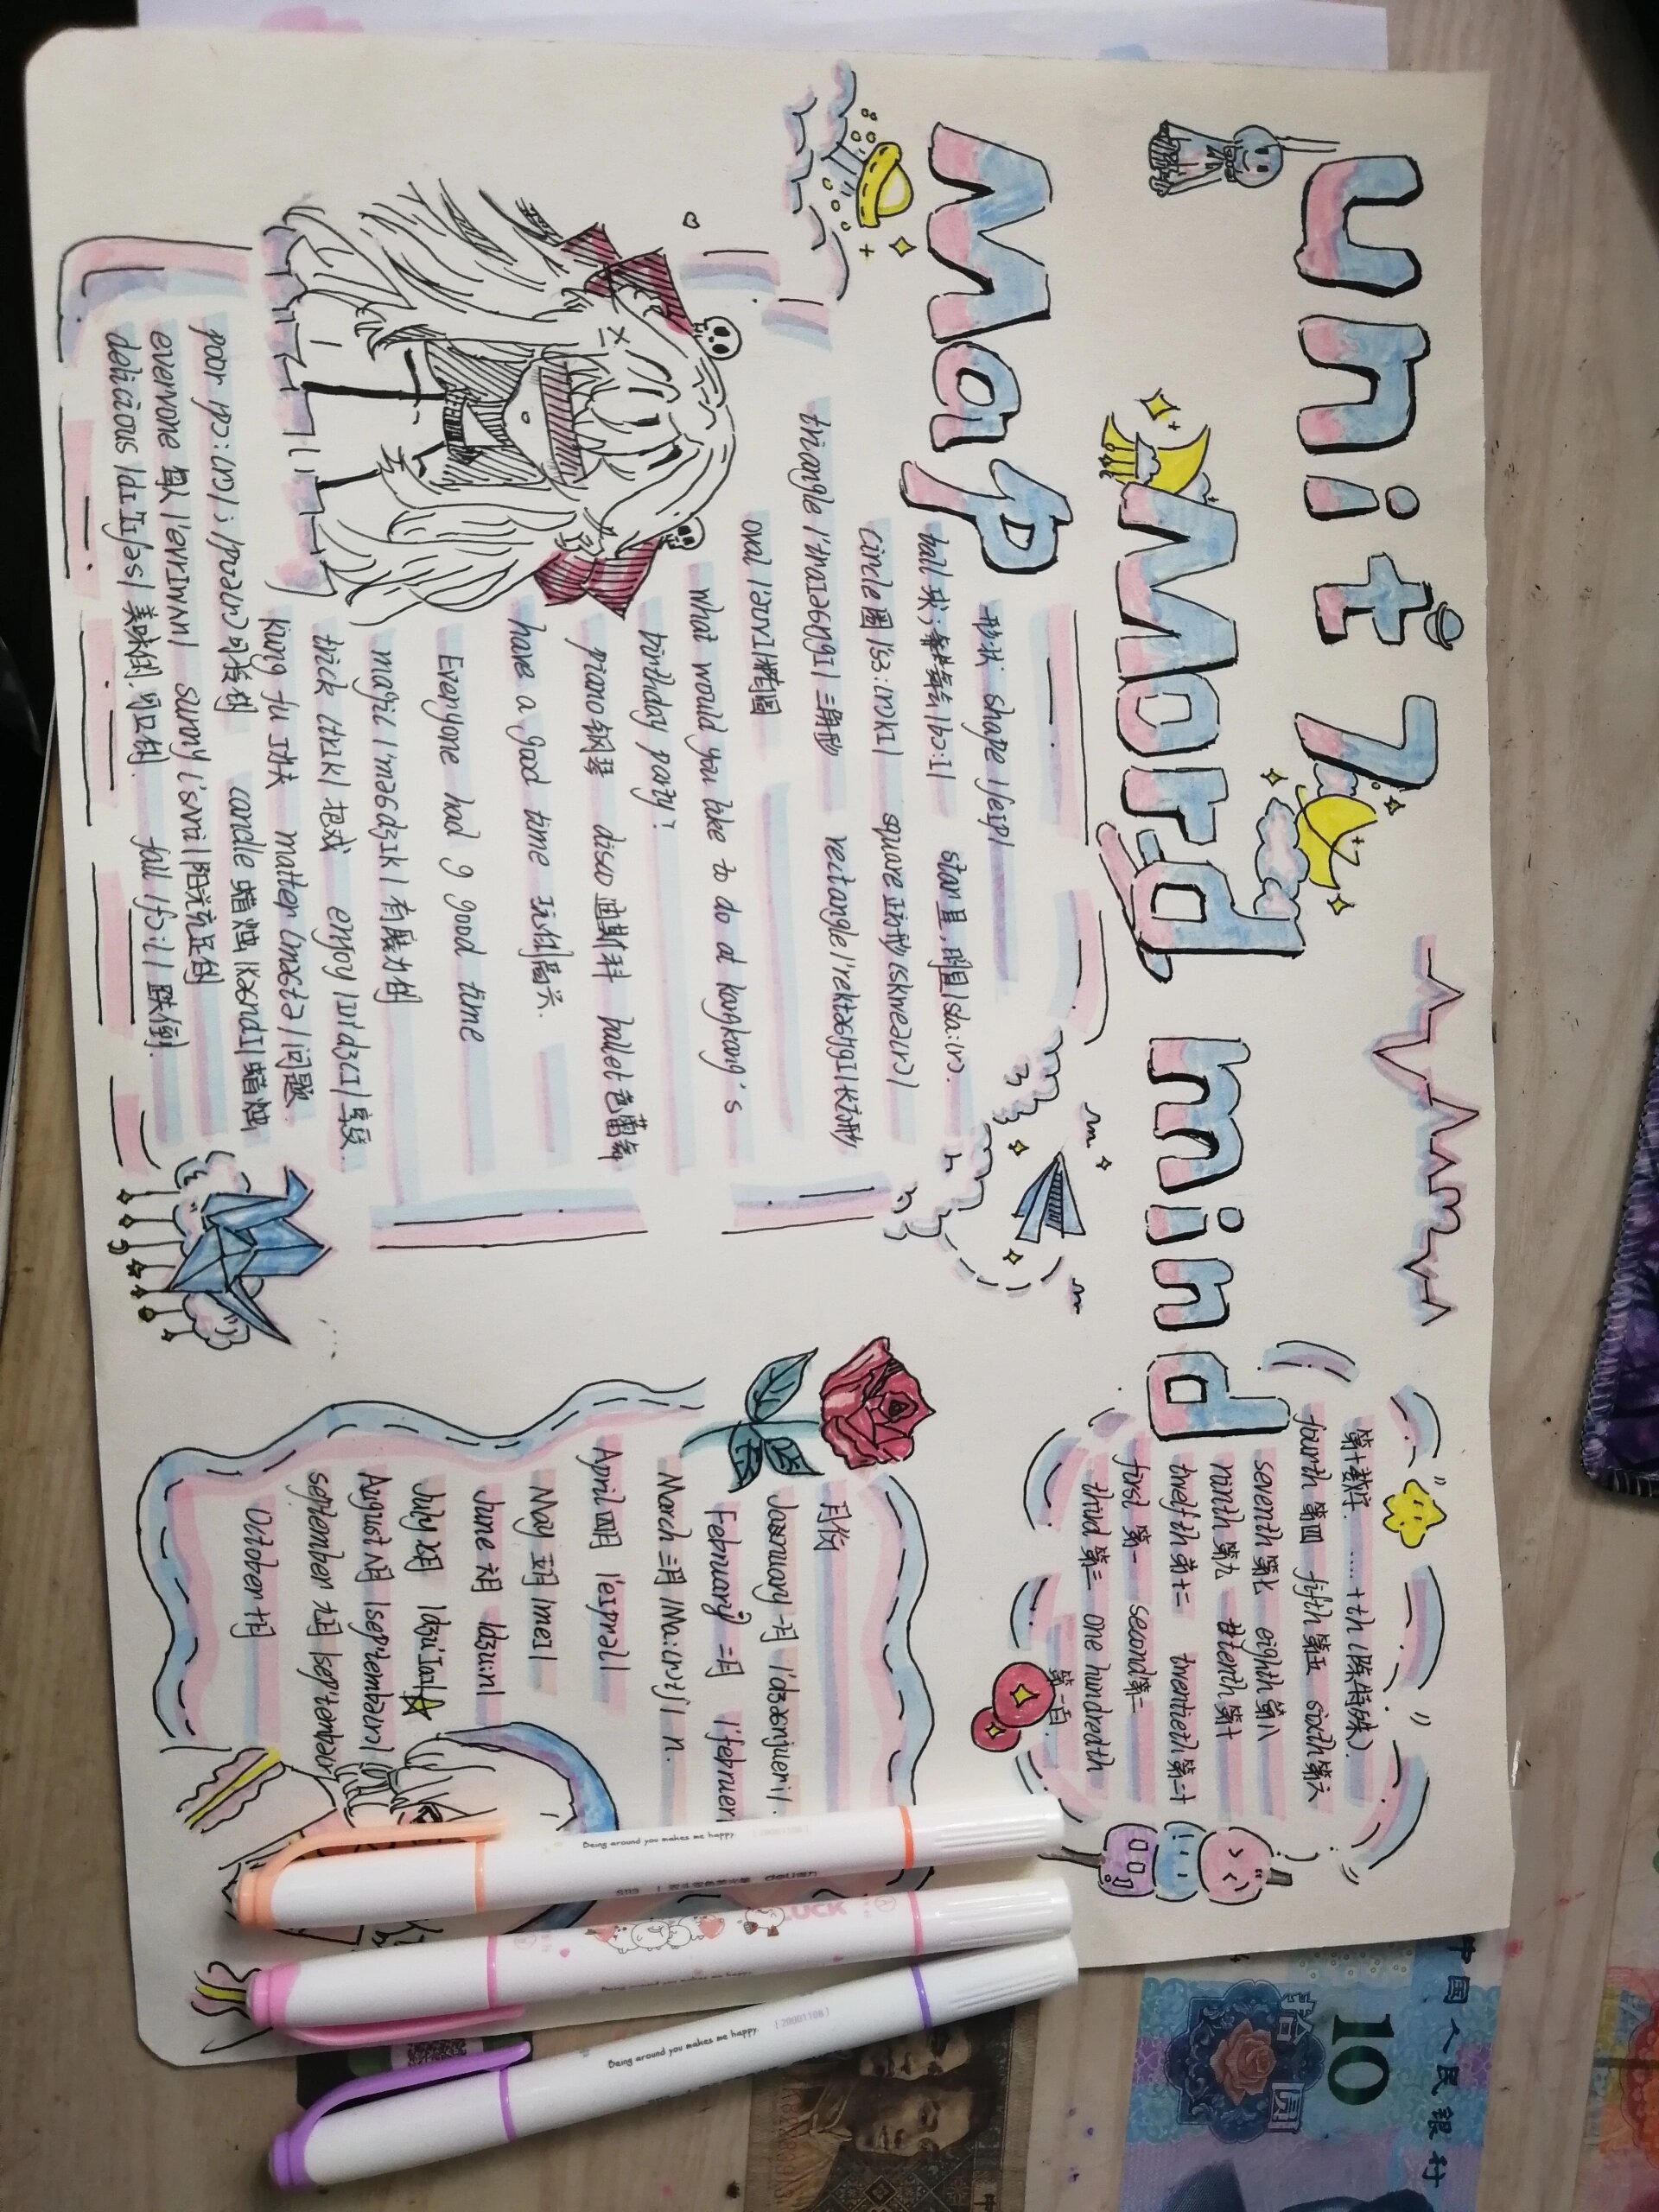 Unit 7
Word mind
Map
第十数字. ……+th (除特殊).
fourth 第四 fifth 第五 sixth 第六
seventh 第七 eighth 第八
ninth 第九 tenth 第十
twelfth 第十二 twentieth 第二十
first 第一 second 第二
third 第三 one hundredth
第一百.
形状 shape /ʃeɪp/
ball 球; /bɔ:l/ star 星, 明星 /sta:(r).
circle 圈 /'sɜ:(r)kl/ square 正方形 /skweə(r)/
triangle /'traɪæŋgl/ 三角形 rectangle /'rektæŋgl/ 长方形
oval /'əʊvl/ 椭圆
what would you like to do at kangkang's
birthday party?
piano 钢琴 disco 迪斯科 ballet 芭蕾舞
have a good time 玩得高兴.
Everyone had a good time
magic /mædʒɪk/ 有魔力的
trick /trɪk/ 把戏 enjoy /ɪn'dʒɔɪ/ 享受.
kung fu 功夫 matter /mætə/ 问题
poor /pɔ:(r)/; /pʊə(r)/ 可怜的 candle 蜡烛 /kændl/ 蜡烛
everyone 每人 /'evrɪwʌn/ sunny /'sʌni/ 阳光充足的
delicious /dɪ'lɪʃəs/ 美味的. 可口的. fall /fɔ:l/ 跌倒.
月份
January 一月 /'dʒænjueri/.
February 二月 /'februer
March 三月 /Ma:(r)tʃ/ n.
April 四月 /'eɪprəl/
May 五月 /meɪ/
June 六月 /dʒu:n/
July 七月 /dʒu'laɪ/
August 八月 /sep'tembə(r)/
september 九月 /sep'tember
October 十月
Being around you makes me happy
deli
LUCK
Being around you makes me happy
Being around you makes me happy.
[20001108]
中国人民银行
10
拾圆